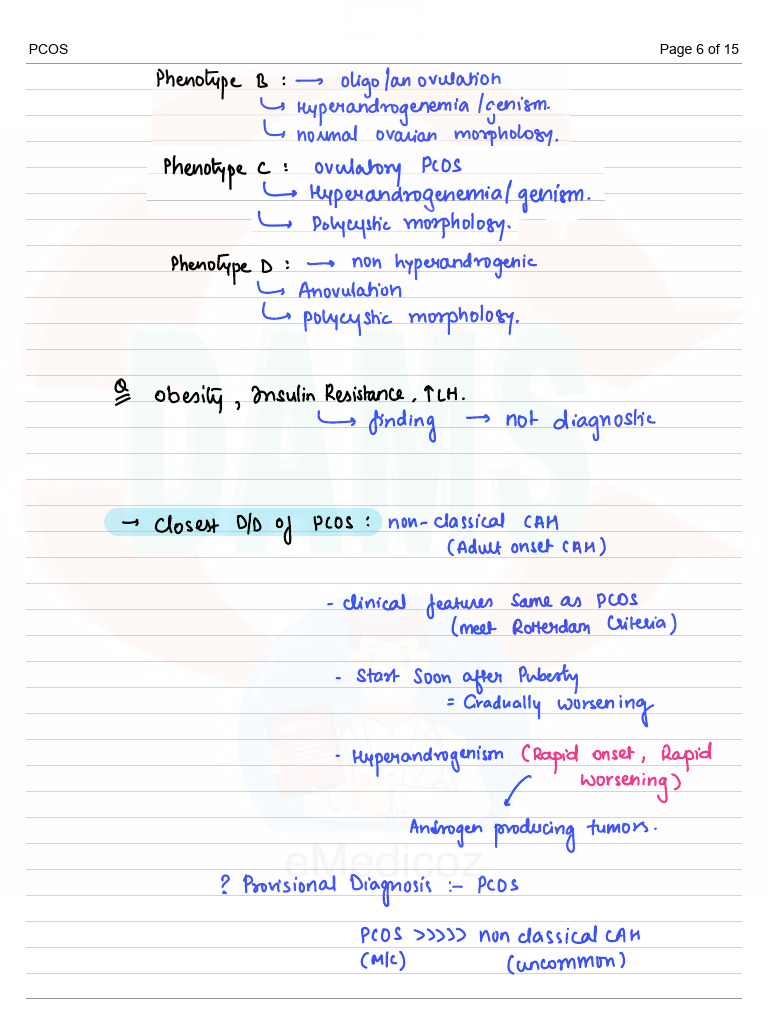 PCOS
Page 6 of 15
Phenotype B : → oligo/anovulation
↳ Hyperandrogenemia/genism.
↳ normal ovarian morphology.
Phenotype C : ovulatory PCOS
↳ Hyperandrogenemia/genism.
↳ Polycystic morphology.
Phenotype D : → non hyperandrogenic
↳ Anovulation
↳ polycystic morphology.
DAMS
Q obesity, Insulin Resistance, ↑LH.
↳ finding → not diagnostic
→ Closest D/D of PCOS : non-classical CAH
(Adult onset CAH)
- clinical features same as PCOS
(meet Rotterdam Criteria)
- Start Soon after Puberty
= Gradually worsening
- Hyperandrogenism (Rapid onset, Rapid
worsening)
Androgen producing tumors.
eMedicoz
? Provisional Diagnosis :- PCOS
PCOS >>>>> non classical CAH
(M/C) (uncommon)